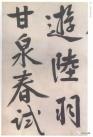 遊陸羽
甘泉春試